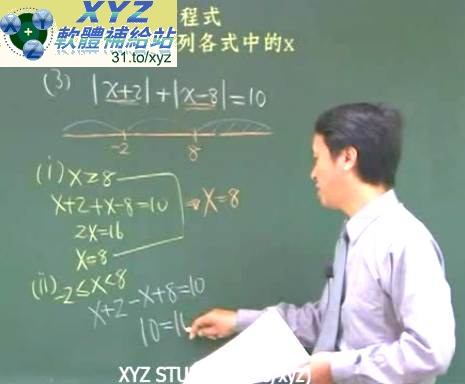 XYZ
軟體補給站
31.to/xyz
程式
列各式中的x
(3) |x+2|+|x-8|=10
-2 8
(i) x≥8
x+2+x-8=10 → x=8
2x=16
x=8
(ii) -2≤x<8
x+2-x+8=10
10=1
XYZ STU
xyz)